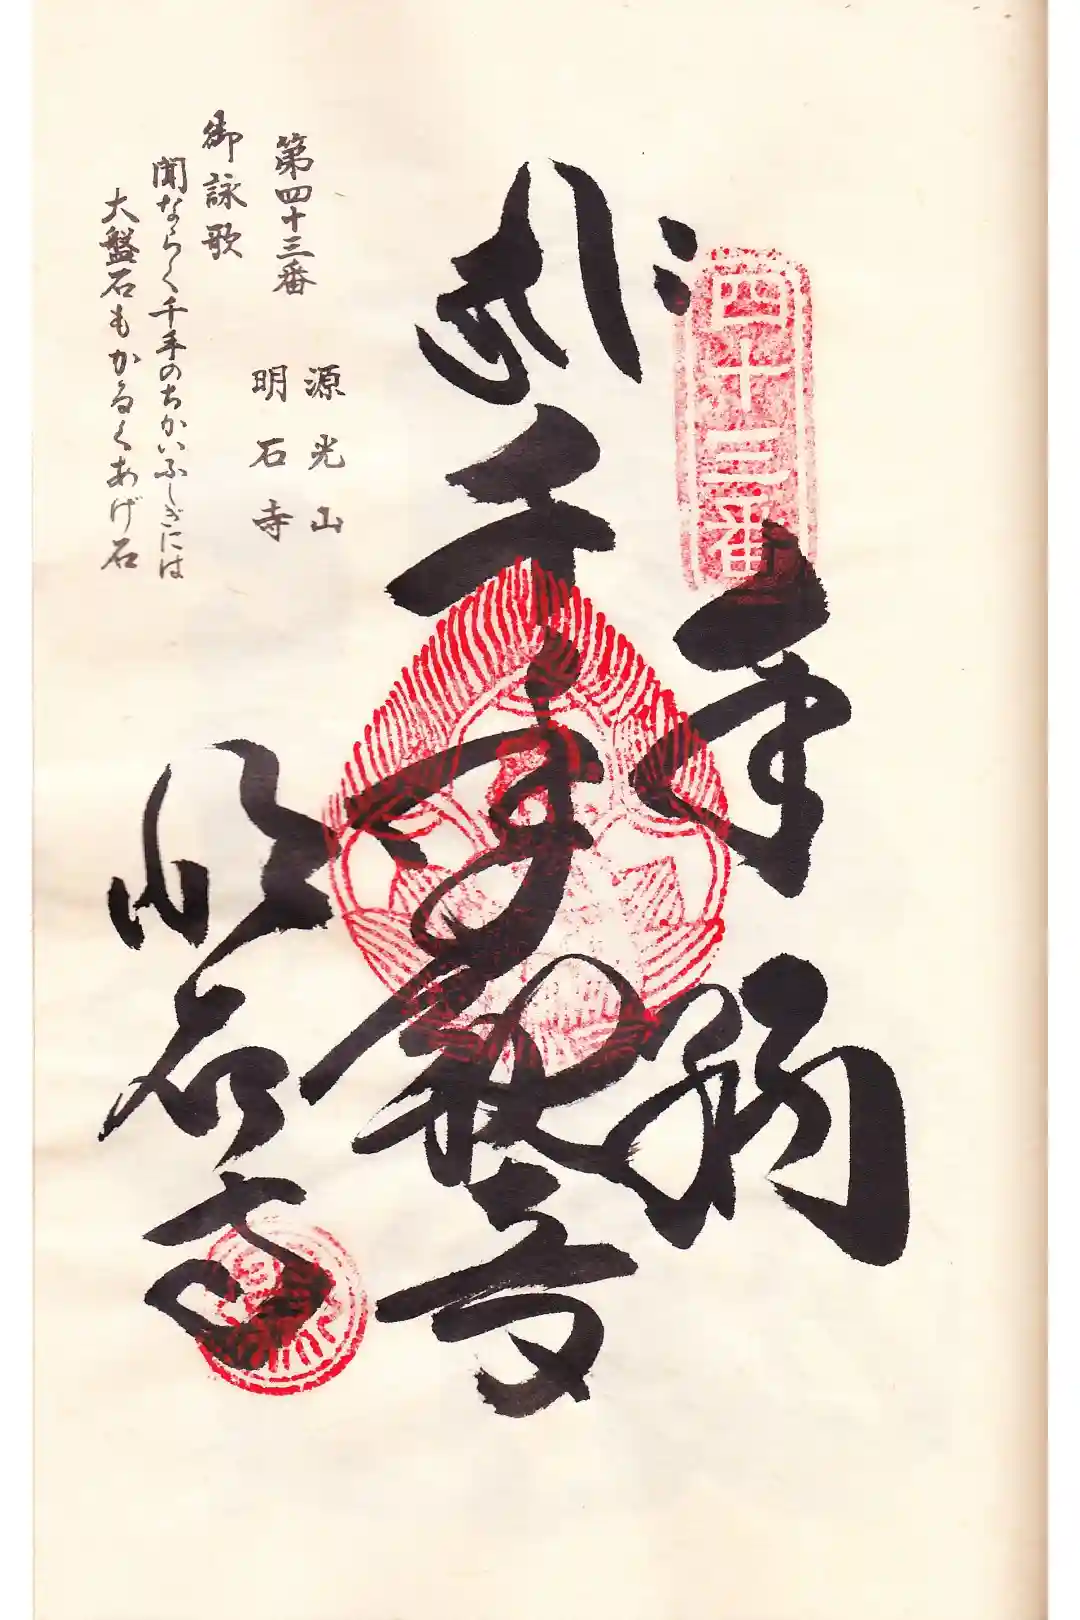 四十三番
奉納
千手教寺
明石寺
第四十三番
源光山
明石寺
御詠歌
聞ならく千手のちかいふしぎには
大盤石もかるくあげ石